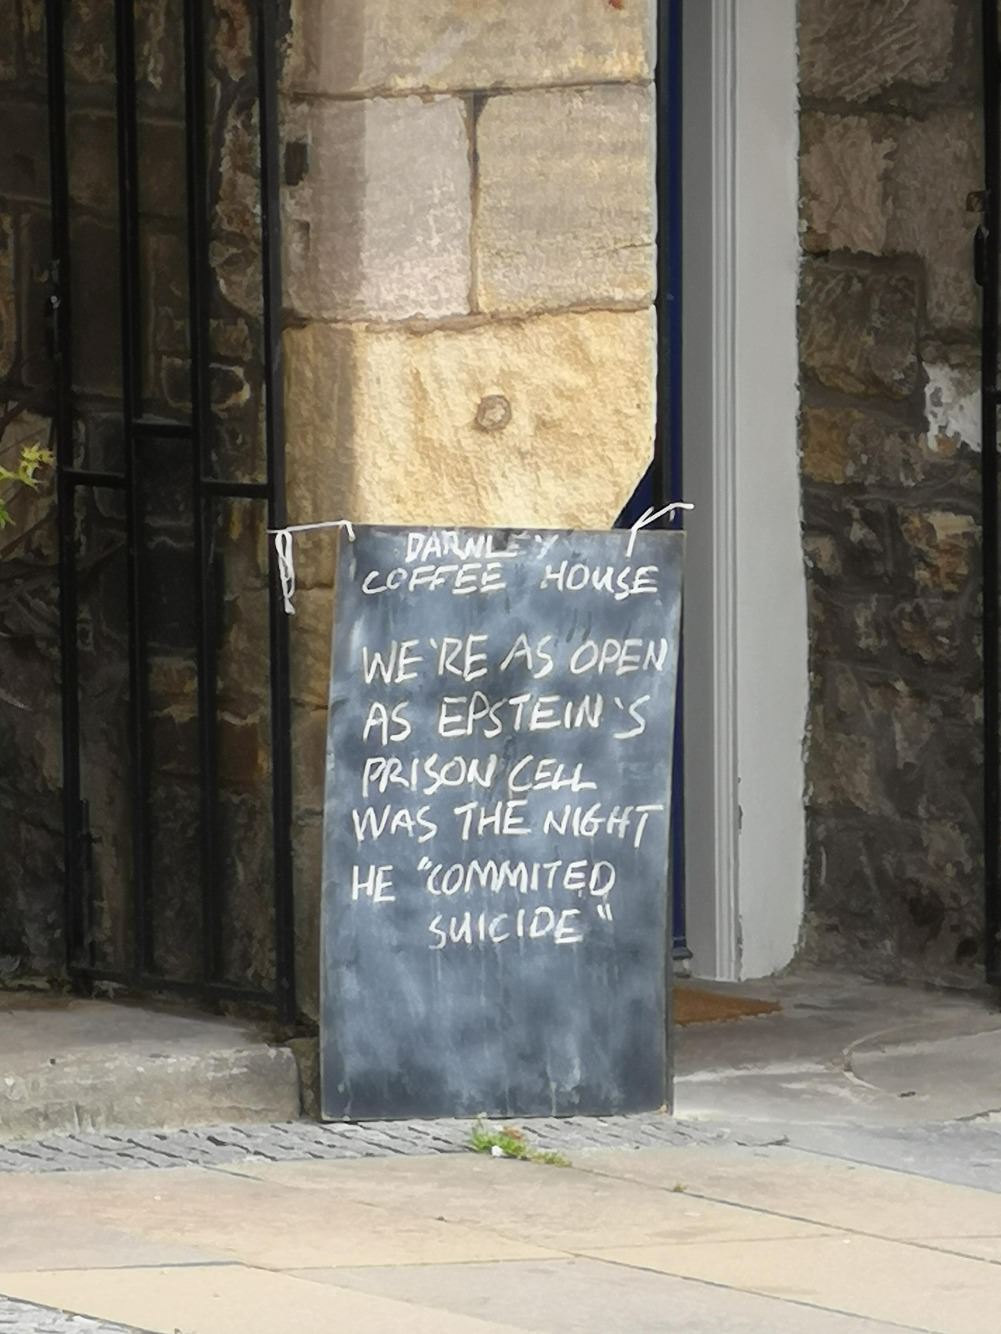 DARNLEY
COFFEE HOUSE
WE'RE AS OPEN
AS EPSTEIN'S
PRISON CELL
WAS THE NIGHT
HE "COMMITED
SUICIDE"